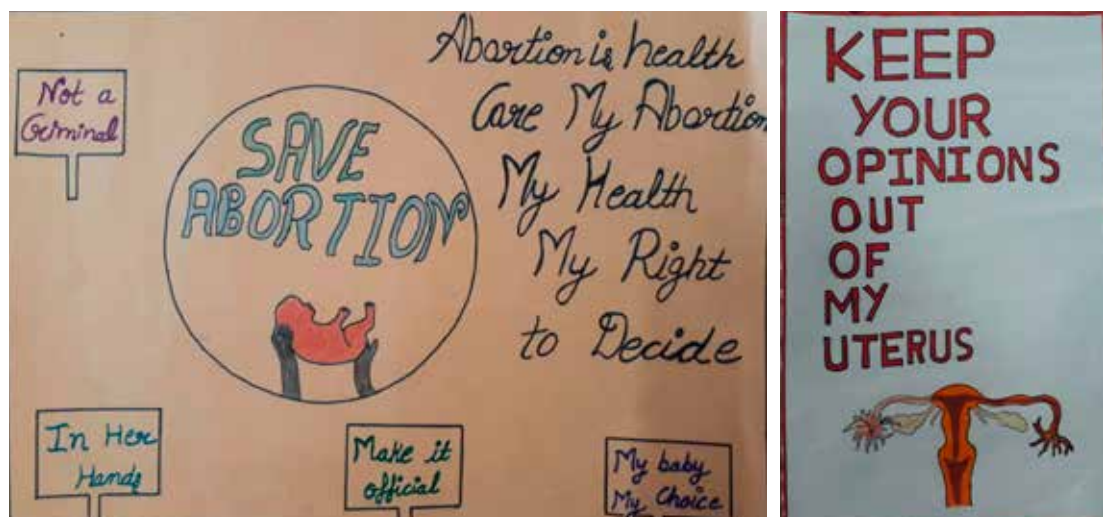 Not a
Criminal
SAVE
ABORTION
Abortion is health
Care My Abortion
My Health
My Right
to Decide
In Her
Hands
Make it
official
My baby
My Choice
KEEP
YOUR
OPINIONS
OUT
OF
MY
UTERUS